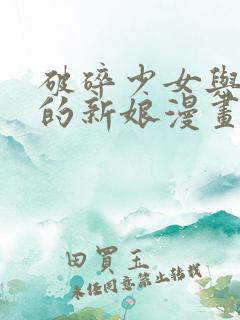 破碎少女與
的新娘漫畫
田買玉
未經同意禁止轉載